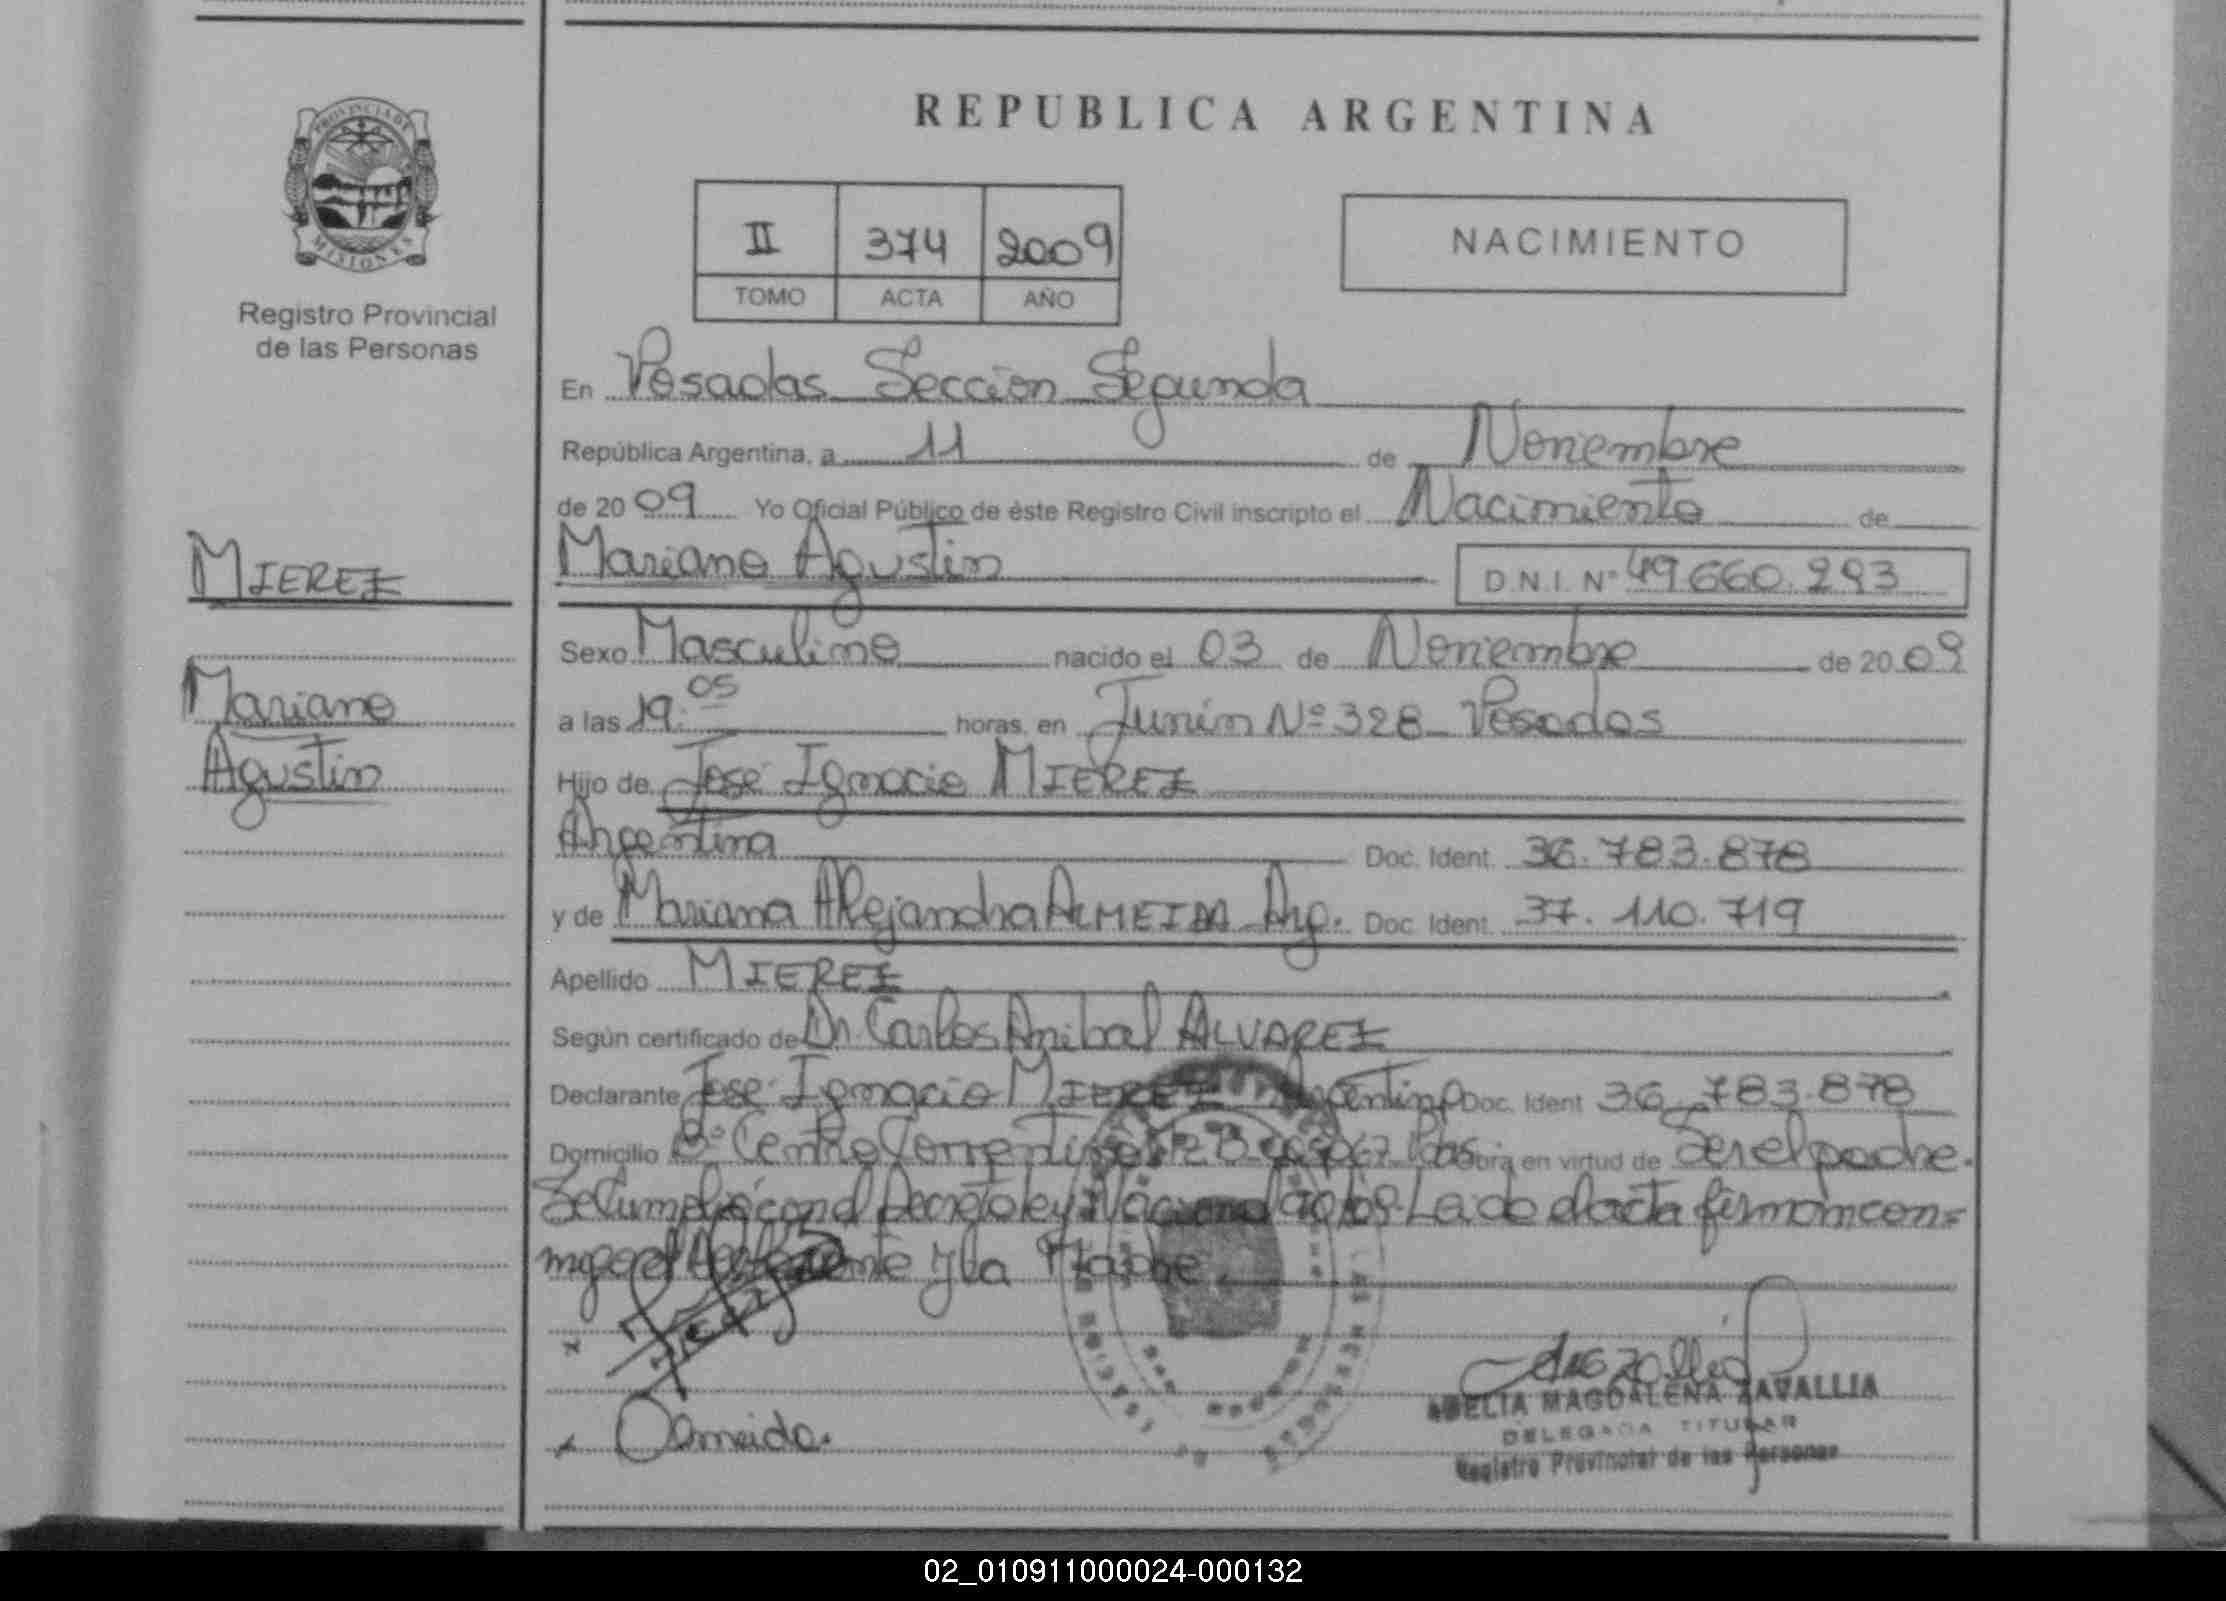 PROVINCIA DE
MISIONES
Registro Provincial
de las Personas
MIEREZ
Mariano
Agustin
REPUBLICA ARGENTINA
II 374 2009
TOMO ACTA AÑO
NACIMIENTO
En Posadas Seccion Segunda
República Argentina, a 11 de Noviembre
de 2009 Yo Oficial Público de éste Registro Civil inscripto el Nacimiento de
Mariano Agustin D.N.I. Nº 49.660.293
Sexo Masculino nacido el 03 de Noviembre de 2009
a las 19.05 horas, en Junin Nº 328 Posadas
Hijo de José Ignacio MIEREZ
Argentina Doc. Ident. 36.783.878
y de Mariana Alejandra ALMEIDA Arg. Doc. Ident. 37.110.719
Apellido MIEREZ
Según certificado de Dr. Carlos Anibal ALVAREZ
Declarante José Ignacio MIEREZ Argentina Doc. Ident 36.783.878
Domicilio Bº Centro Correntino Pdas Obra en virtud de Ser el padre.
Se Cumplió con el Decreto ley Nacional Leido el acta firman con=
migo el Declarante y la Madre.
x
x Almeida.
ADELIA MAGDALENA ZAVALLIA
DELEGADA TITULAR
Registro Provincial de las Personas
02_010911000024-000132